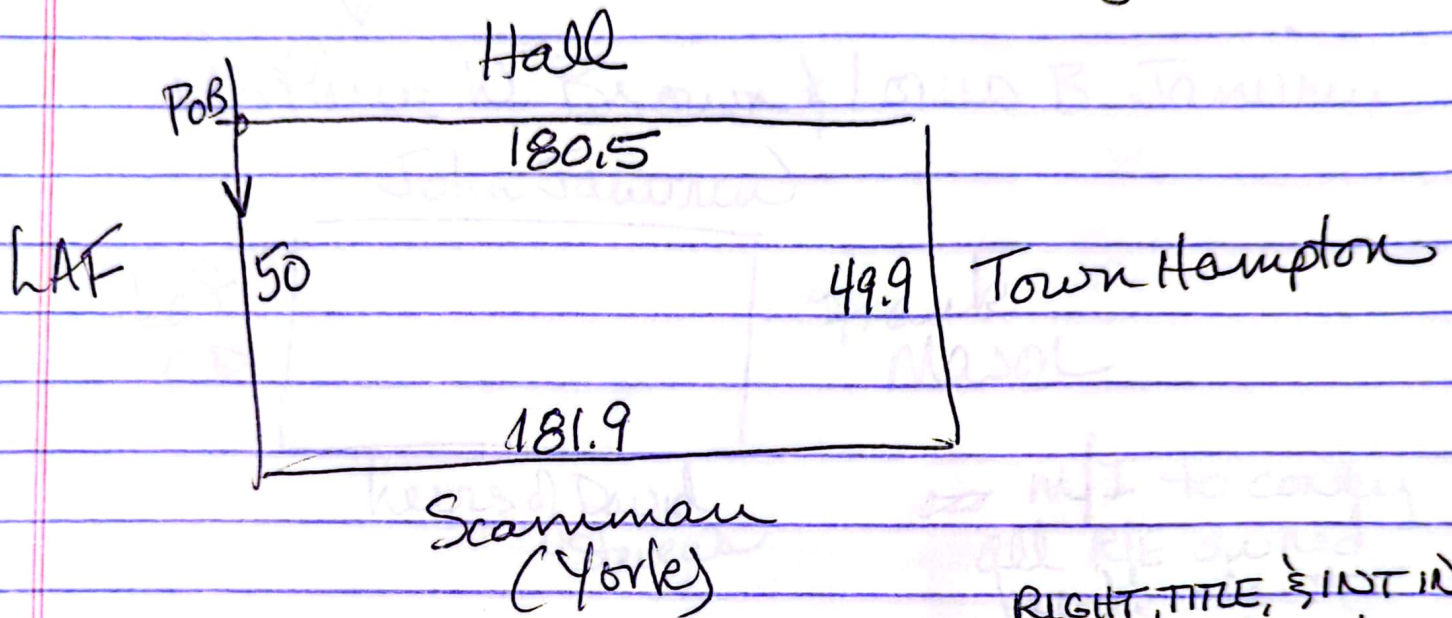 Hall
POB
180.5
LAF
50
49.9
Town Hampton
181.9
Scamman
(York)
RIGHT, TITLE, & INT IN